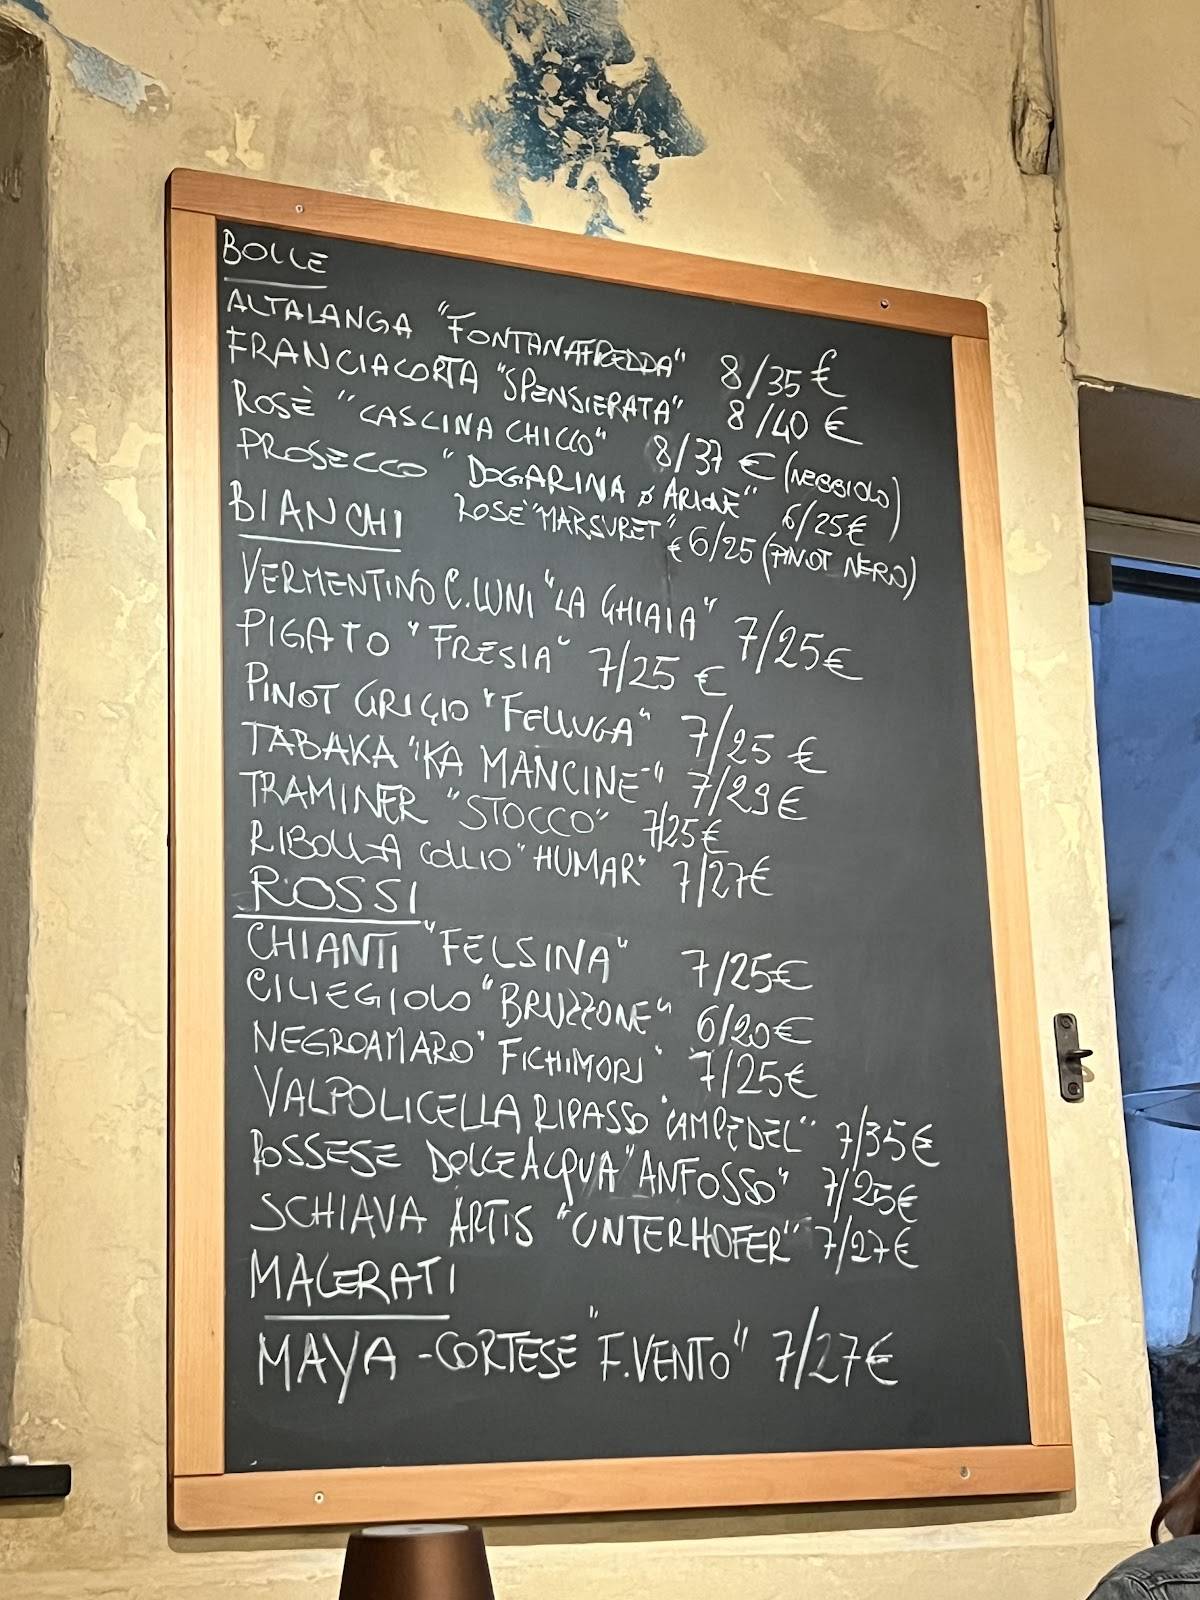 BOLLE
ALTALANGA "FONTANAFREDDA" 8/35 €
FRANCIACORTA "SPENSIERATA" 8/40 €
ROSÈ "CASCINA CHICCO" 8/37 € (NEBBIOLO)
PROSECCO "DOGARINA Ø ARIONE" 6/25€
ROSÈ "MARSURET" € 6/25 (PINOT NERO)
BIANCHI
VERMENTINO C.LUNI "LA GHIAIA" 7/25€
PIGATO "FRESIA" 7/25 €
PINOT GRIGIO "FELLUGA" 7/25 €
TABAKA "KA MANCINE" 7/29€
TRAMINER "STOCCO" 7/25€
RIBOLLA COLLIO "HUMAR" 7/27€
ROSSI
CHIANTI "FELSINA" 7/25€
CILIEGIOLO "BRUZZONE" 6/20€
NEGROAMARO "FICHIMORI" 7/25€
VALPOLICELLA RIPASSO "CAMPEDEL" 7/35€
ROSSESE DOLCEACQUA "ANFOSSO" 7/25€
SCHIAVA ARTIS "UNTERHOFER" 7/27€
MACERATI
MAYA - CORTESE "F.VENTO" 7/27€